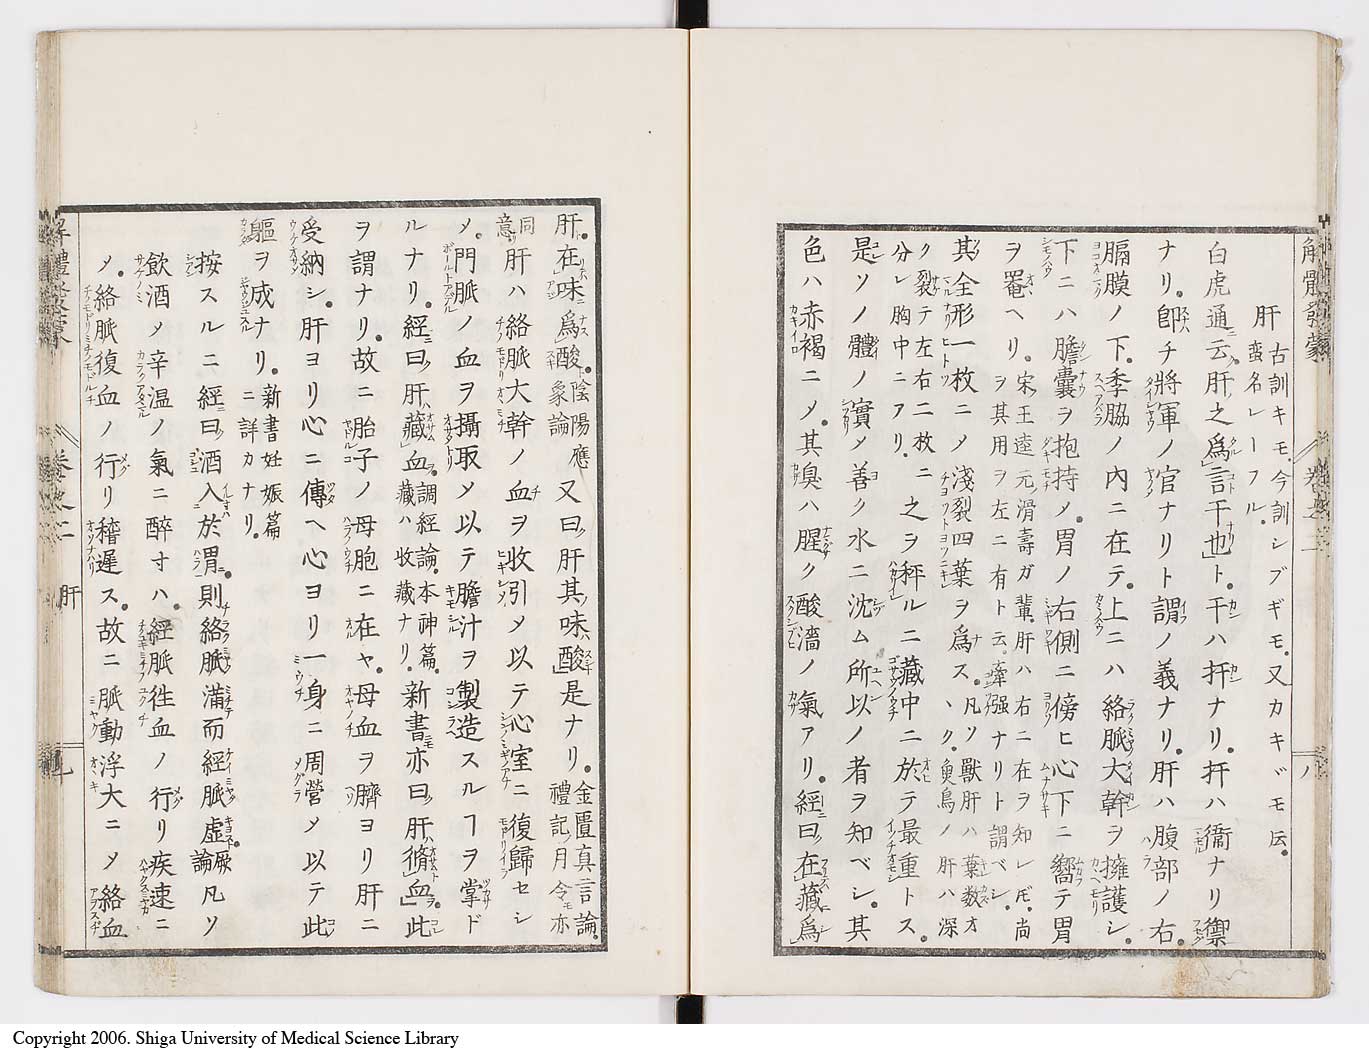 解體發蒙 卷之二 八
肝 古訓キモ。今訓シブギモ。又カキヾモ伝。
蛮名レーフル。
白虎通云。肝之為言干也ト。干ハ扞ナリ。扞ハ衞ナリ禦
ナリ。卽チ將軍ノ官ナリト謂ノ義ナリ。肝ハ腹部ノ右。
膈膜ノ下。季脇ノ內ニ在テ。上ニハ絡脈大幹ヲ擁護シ。
下ニハ膽囊ヲ抱持メ。胃ノ右側ニ傍ヒ心下ニ嚮テ胃
ヲ罨ヘリ。宋王逵元滑壽ガ輩。肝ハ右ニ在ヲ知レ𪜈。尚
ヲ其用ヲ左ニ有ト云。牽强ナリト謂ベシ。
其全形一枚ニメ淺裂四葉ヲ為ス。凡ソ獸肝ハ葉数オ
ヽク。魚鳥ノ肝ハ深
ク裂テ左右二枚ニ
分レ胸中ニアリ。之ヲ秤ルニ藏中ニ於テ最重トス。
是ソノ體ノ實ノ善ク水ニ沈ム所以ノ者ヲ知ベシ。其
色ハ赤褐ニメ。其臭ハ腥ク酸濇ノ氣アリ。經曰。在藏為
肝。在味為酸。陰陽應
象論 又曰。肝其味酸是ナリ。金匱真言論。
禮記月令モ亦
同
意 肝ハ絡脈大幹ノ血ヲ收引メ以テ心室ニ復歸セシ
メ。門脈ノ血ヲ攝取メ以テ膽汁ヲ製造スルヿヲ掌ド
ルナリ。經曰。肝藏血。調經論。本神篇。
藏ハ收藏ナリ。新書亦曰。肝脩血。此
ヲ謂ナリ。故ニ胎子ノ母胞ニ在ヤ。母血ヲ臍ヨリ肝ニ
受納シ。肝ヨリ心ニ傳ヘ心ヨリ一身ニ周營メ以テ此
軀ヲ成ナリ。新書妊娠篇
ニ詳カナリ。
按スルニ經曰。酒入於胃。則絡脈滿而經脈虛。厥
論 凡ソ
飮酒メ辛温ノ氣ニ醉寸ハ。經脈徃血ノ行リ疾速ニ
メ。絡脈復血ノ行リ稽遲ス。故ニ脈動浮大ニメ絡血
解體發蒙 卷之二 肝 九
Copyright 2006. Shiga University of Medical Science Library